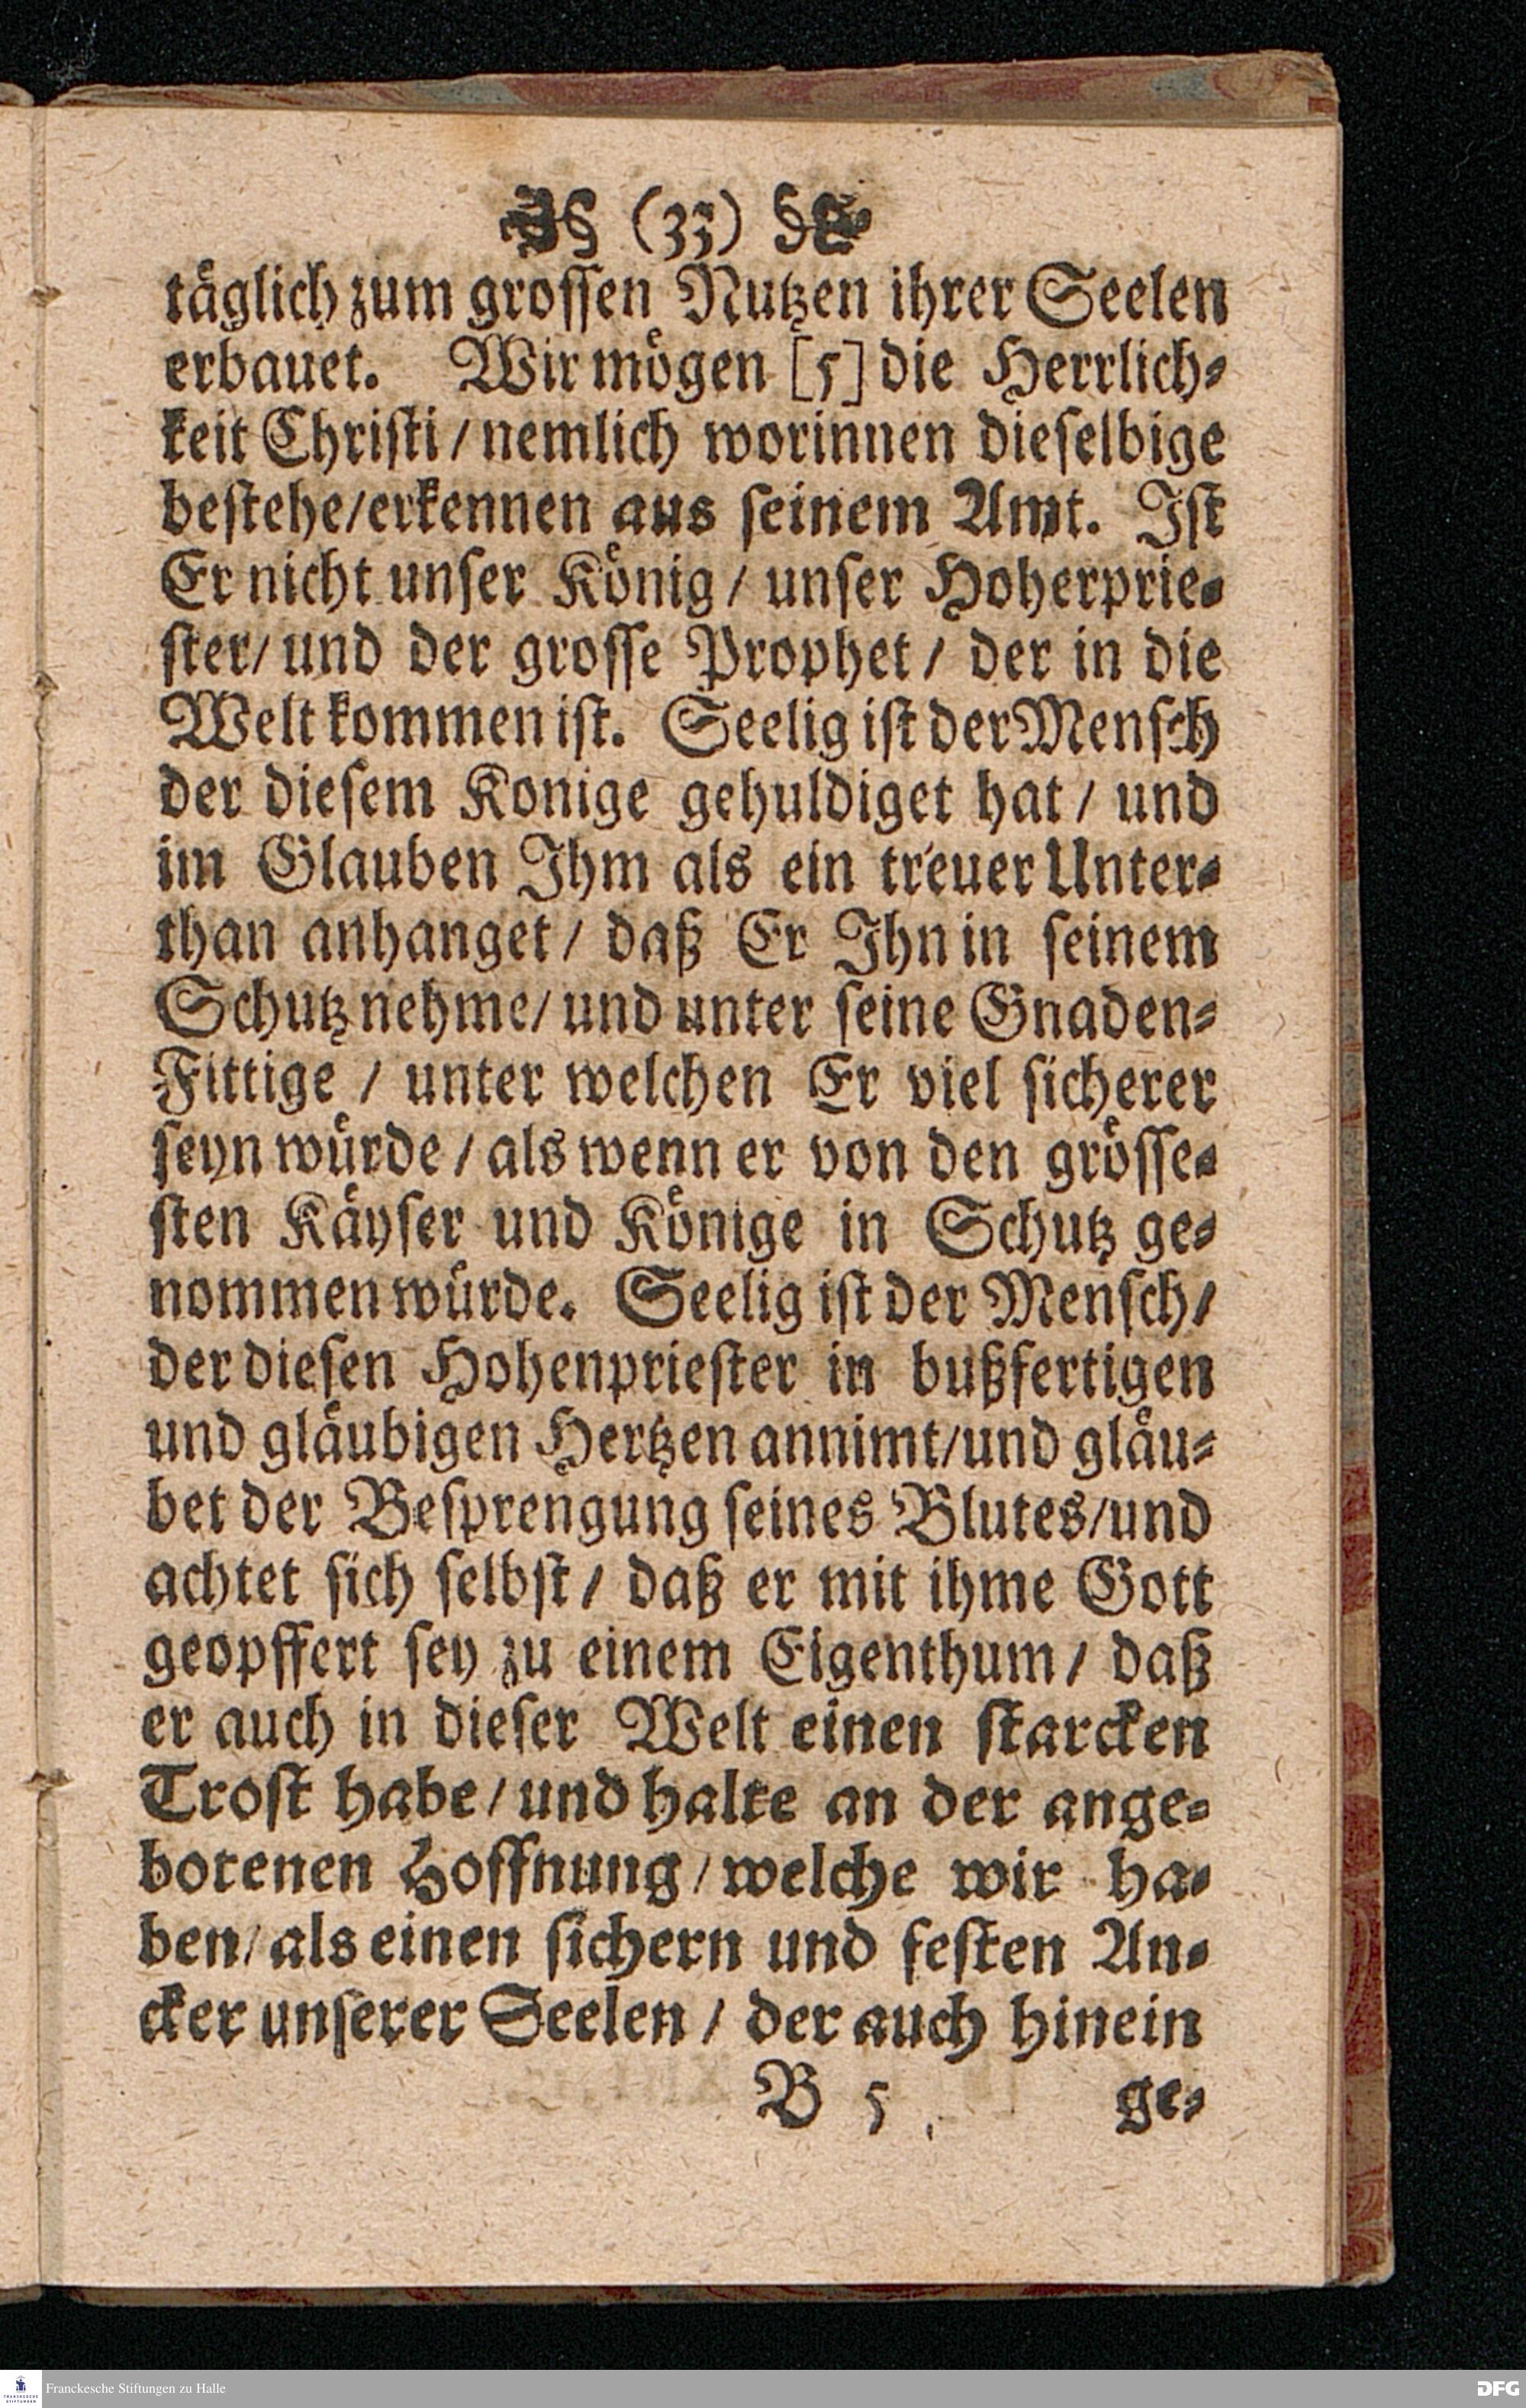 (33)
täglich zum grossen Nutzen ihrer Seelen
erbauet. Wir mögen [5] die Herrlich-
keit Christi / nemlich worinnen dieselbige
bestehe/erkennen aus seinem Amt. Ist
Er nicht unser König / unser Hoherprie-
ster/ und der grosse Prophet / der in die
Welt kommen ist. Seelig ist der Mensch
der diesem Konige gehuldiget hat / und
im Glauben Ihm als ein treuer Unter-
than anhanget / daß Er Ihn in seinem
Schutz nehme/ und unter seine Gnaden-
Fittige / unter welchen Er viel sicherer
seyn würde / als wenn er von den grösse-
sten Käyser und Könige in Schutz ge-
nommen würde. Seelig ist der Mensch/
der diesen Hohenpriester in bußfertigen
und gläubigen Hertzen annimt/und gläu-
bet der Besprengung seines Blutes/und
achtet sich selbst / daß er mit ihme Gott
geopffert sey zu einem Eigenthum / daß
er auch in dieser Welt einen starcken
Trost habe / und halte an der ange-
botenen Hoffnung / welche wir ha-
ben/ als einen sichern und festen An-
cker unserer Seelen / der auch hinein
B 5 ge-
Franckesche Stiftungen zu Halle
DFG